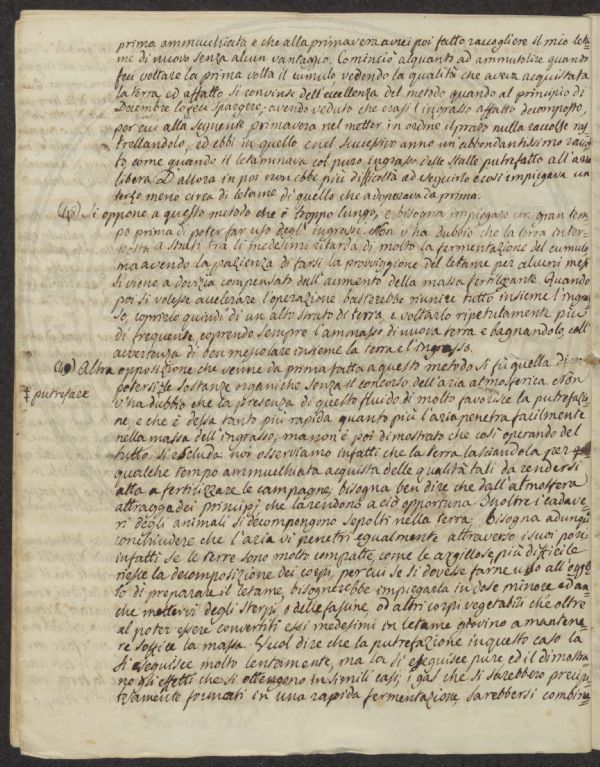 prima ammucchiata e che alla primavera avrei poi fatto raccogliere il mio leta-
me di nuovo senza alcun vantaggio. Cominciò alquanto ad ammutolire quando
feci voltare la prima volta il cumulo vedendo la qualità che aveva acquistata
la terra, ed affatto si convinse dell'eccellenza del metodo quando al principio di
Decembre lo feci spargere, avendo veduto che erasi l'ingrasso affatto decomposto,
per cui alla seguente primavera nel metter in ordine il prato nulla raccolse ras-
trellandolo, ed ebbi in quello, e nel successivo anno un abbondantissimo racol-
to come quando il letaminava col puro ingrasso delle stalle putrefatto all'aria
libera. D'allora in poi non ebbe più difficoltà ad seguirlo e così impiegava un
terzo meno circa di letame di quello che adoperava da prima.
Si oppone a questo metodo che è troppo lungo, e bisogna impiegare un gran tem
po prima di poter far uso degl'ingrassi. Non v'ha dubbio che la terra inter-
posta a strati tra li medesimi ritarda di molto la fermentazione del cumulo
ma avendo la pazienza di farsi la provvigione del letame per alcuni mesi
si viene a dovizia compensato dall'aumento della massa fertilizzante. Quando
poi si volesse accelerare l'operazione basterebbe riunire tutto insieme l'ingras-
so, coprirlo quindi di un alto strato di terra, e voltarlo ripetutamente più
di frequente, coprendo sempre l'ammasso di nuova terra e bagnandolo, coll'
avvertenza di ben mescolare insieme la terra e l'ingrasso.
Altra opposizione che venne da prima fatta a questo metodo si fù quella di
‡ putrefare
potersi ‡ le sostanze organiche senza il concorso dell'aria atmosferica. Non
v'ha dubbio che la presenza di questo fluido di molto favorisce la putrefazio
ne, e che è dessa tanto più rapida quanto più l'aria penetra facilmente
nella massa dell'ingrasso, ma non è poi dimostrato che così operando del
tutto si escluda: noi osserviamo infatti che la terra lasciandola per
qualche tempo ammucchiata acquista delle qualità tali da rendersi
atta a fertilizzare le campagne; bisogna ben dire che dall'atmosfera
attragga dei principj che la rendono a ciò opportuna. Inoltre i cadave-
ri degli animali si decompongono sepolti nella terra; Bisogna adunque
conchiudere che l'aria vi penetri egualmente attraverso i suoi pori
infatti se le terre sono molto compatte, come le argillose, più difficile
riesce la decomposizione dei corpi, per cui se si dovesse farne uso all'ogget-
to di preparare il letame, bisognerebbe impiegarla in dose minore ed an-
che mettervi degli sterpi, o delle fascine, od altri corpi vegetabili che oltre
al poter essere convertiti essi medesimi in letame giovino a mantene
re soffice la massa. Vuol dire che la putrefazione in questo caso la
si eseguisce molto lentamente, ma la si eseguisce pure ed il dimostra-
no gli effetti che si ottengono in simili casi; i gas che si sarebbero precipi-
tosamente formati in una rapida fermentazione, sarebbersi combina-